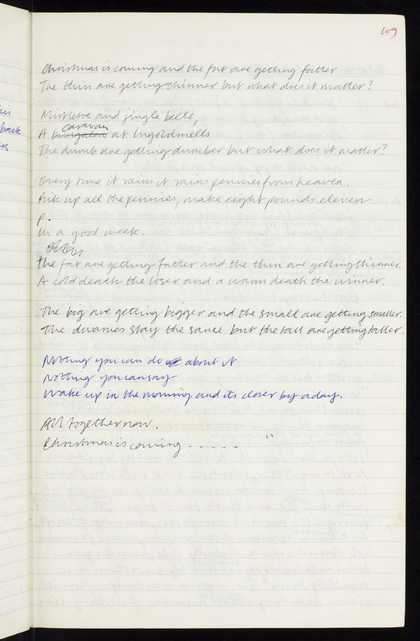 109
Christmas is coming and the fat are getting fatter
The thin are getting thinner but what does it matter?
Mistletoe and jingle bells,
caravan
A bungalow at Ingoldmells
The dumb are getting dumber but what does it matter?
Every time it rains it rains pennies from heaven.
Pick up all the pennies, make eight pounds eleven
p.
In a good week.
The fat are getting fatter and the thin are getting thinner.
A cold death the loser and a warm death the winner.
The big are getting bigger and the small are getting smaller.
The dwarves stay the same but the tall are getting taller.
Nothing you can do about it
Nothing you can say
Wake up in the morning and its closer by a day.
All together now.
Christmas is coming - - - - - "
back